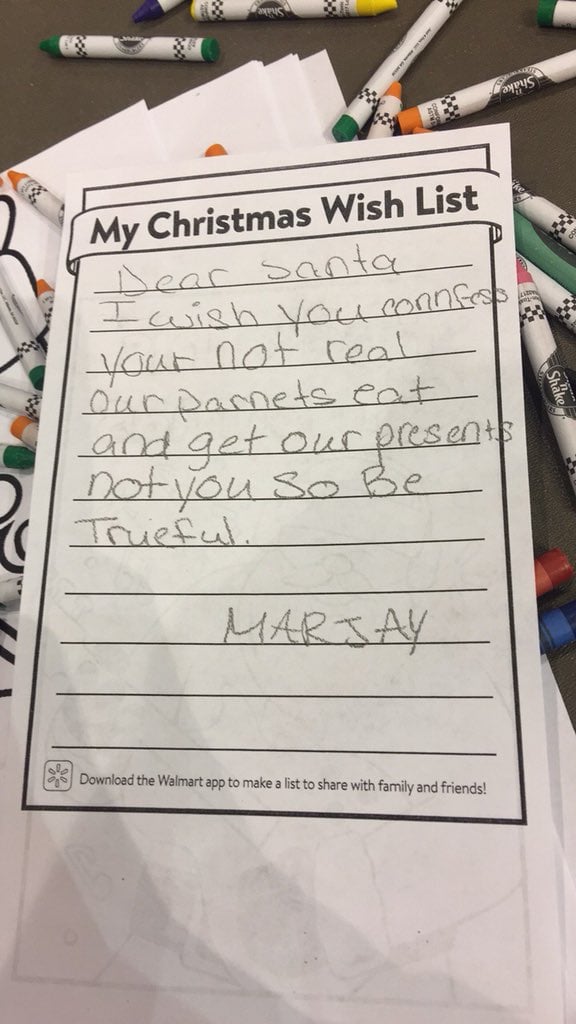 My Christmas Wish List
Dear Santa
I wish you connfess
your not real
Our parnets eat
and get our presents
not you So Be
Trueful.
MARJAY
Download the Walmart app to make a list to share with family and friends!
Shake
Shake
Shake